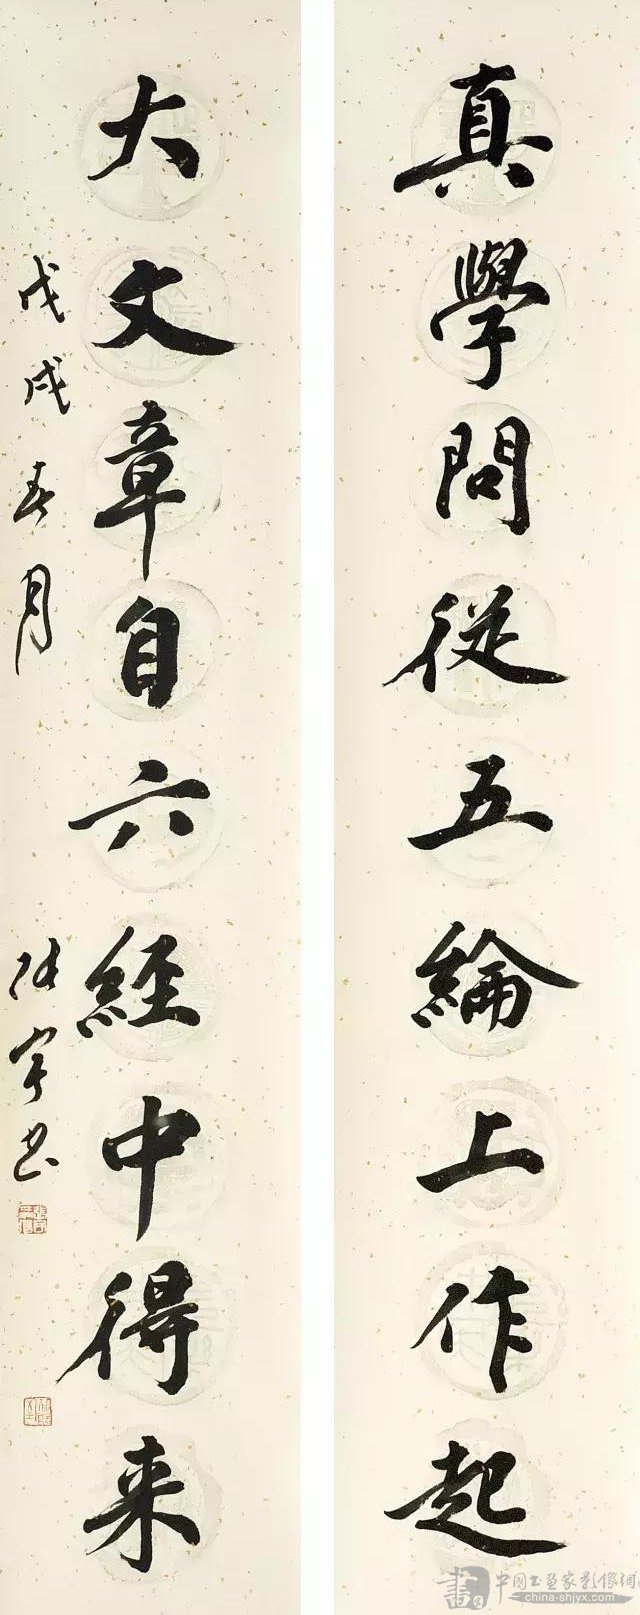 真學問從五綸上作起
大文章自六經中得来
戊戌春月 張宇书
中国书画家影像網
china-shjyx.com